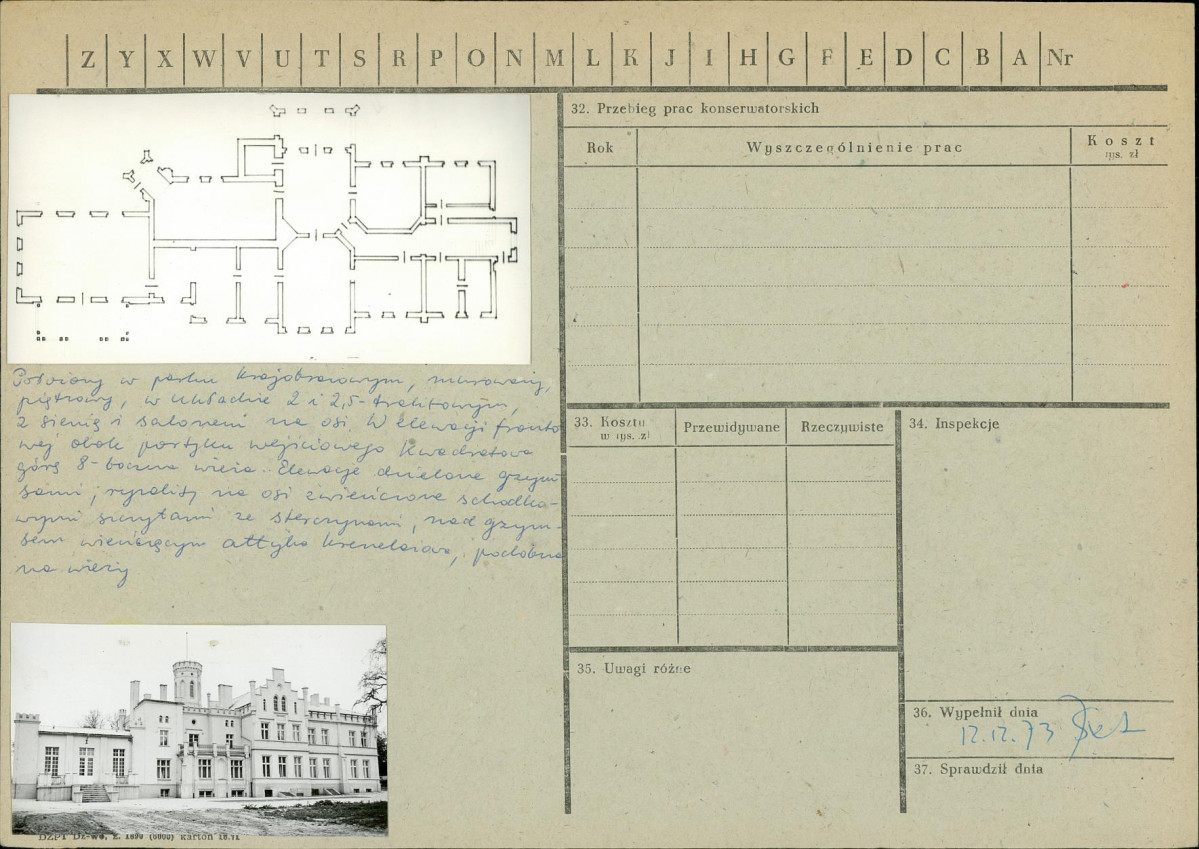 Z Y X W V U T S R P O N M L K J I H G F E D C B A Nr
32. Przebieg prac konserwatorskich
Rok
Wyszczególnienie prac
Koszt
tys. zł
Położony w parku krajobrazowym, murowany,
piętrowy, w układzie 2 i 2,5-traktowym,
z sienią i salonem na osi. W elewacji fronto
wej obok portyku wejściowego kwadratowa
górą 8-boczna wieża. Elewacje dzielone gzym
sami, ryzality na osi zwieńczone schodko-
wymi szczytami ze sterczynami, nad gzym-
sem wieńczącym attyka krenelażowa, podobna
na wieży
33. Koszty
w tys. zł
Przewidywane
Rzeczywiste
34. Inspekcje
35. Uwagi różne
36. Wypełnił dnia
12.12.73
37. Sprawdził dnia
DZPT Dz-wo, z. 1890 (6000) karton 16.71